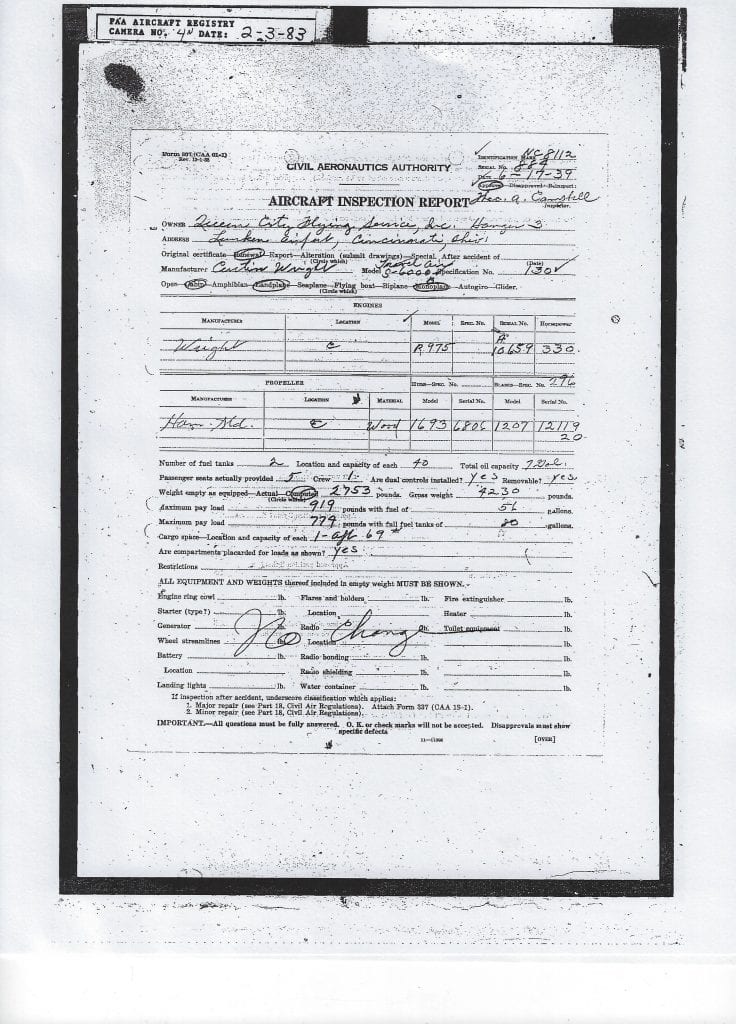 FAA AIRCRAFT REGISTRY
CAMERA NO. 4N DATE: 2-3-83
Form 307 (CAA 61-1)
CIVIL AERONAUTICS AUTHORITY
IDENTIFICATION MARK NC-8112
SERIAL NO. 884
DATE 6-17-39
Approved—Disapproved—Reinspect:
AIRCRAFT INSPECTION REPORT
Inspector.
OWNER Queen City Flying Service, Inc. Hangar 3
ADDRESS Lunken Airport, Cincinnati, Ohio
Original certificate—Renewal—Export—Alteration (submit drawings)—Special. After accident of
(Circle which) (Date)
Manufacturer Curtiss Wright Model Travel Air S-6000-B Specification No. 130
Open—Cabin—Amphibian—Landplane—Seaplane—Flying boat—Biplane—Monoplane—Autogiro—Glider.
(Circle which)
ENGINES
MANUFACTURER LOCATION MODEL SPEC. NO. SERIAL NO. HORSEPOWER
Wright C R 975 A 10659 330
PROPELLER HUBS—SPEC. NO. BLADES—SPEC. NO. 296
MANUFACTURER LOCATION MATERIAL Model Serial No. Model Serial No.
Ham. Std. C Wood 1693 6806 1207 12119
20
Number of fuel tanks 2 Location and capacity of each 40 Total oil capacity 7 Gal.
Passenger seats actually provided 5 Crew 1 Are dual controls installed? yes Removable? yes
Weight empty as equipped—Actual—Computed 2753 pounds. Gross weight 4230 pounds.
(Circle which)
Maximum pay load 919 pounds with fuel of 56 gallons.
Maximum pay load 774 pounds with full fuel tanks of 80 gallons.
Cargo space—Location and capacity of each 1-aft 69#
Are compartments placarded for loads as shown? yes
Restrictions
ALL EQUIPMENT AND WEIGHTS thereof included in empty weight MUST BE SHOWN.
Engine ring cowl lb. Flares and holders lb. Fire extinguisher lb.
Starter (type?) lb. Location Heater lb.
Generator lb. Radio lb. Toilet equipment lb.
No Change
Wheel streamlines lb. Location lb.
Battery lb. Radio bonding lb. lb.
Location Radio shielding lb. lb.
Landing lights lb. Water container lb. lb.
If inspection after accident, underscore classification which applies:
1. Major repair (see Part 18, Civil Air Regulations). Attach Form 337 (CAA 19-1).
2. Minor repair (see Part 18, Civil Air Regulations).
IMPORTANT.—All questions must be fully answered. O. K. or check marks will not be accepted. Disapprovals must show
specific defects
[OVER]